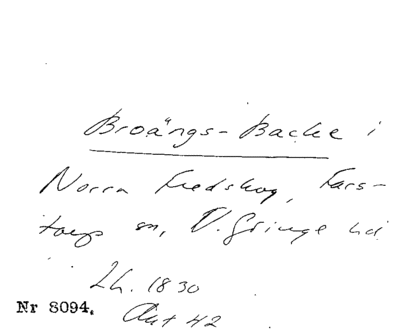 Broängs-Backe i
Norra Fredskog, Fars-
torps sn, V. Göinge hd
Lh. 1830
Nr 8094. Akt 42